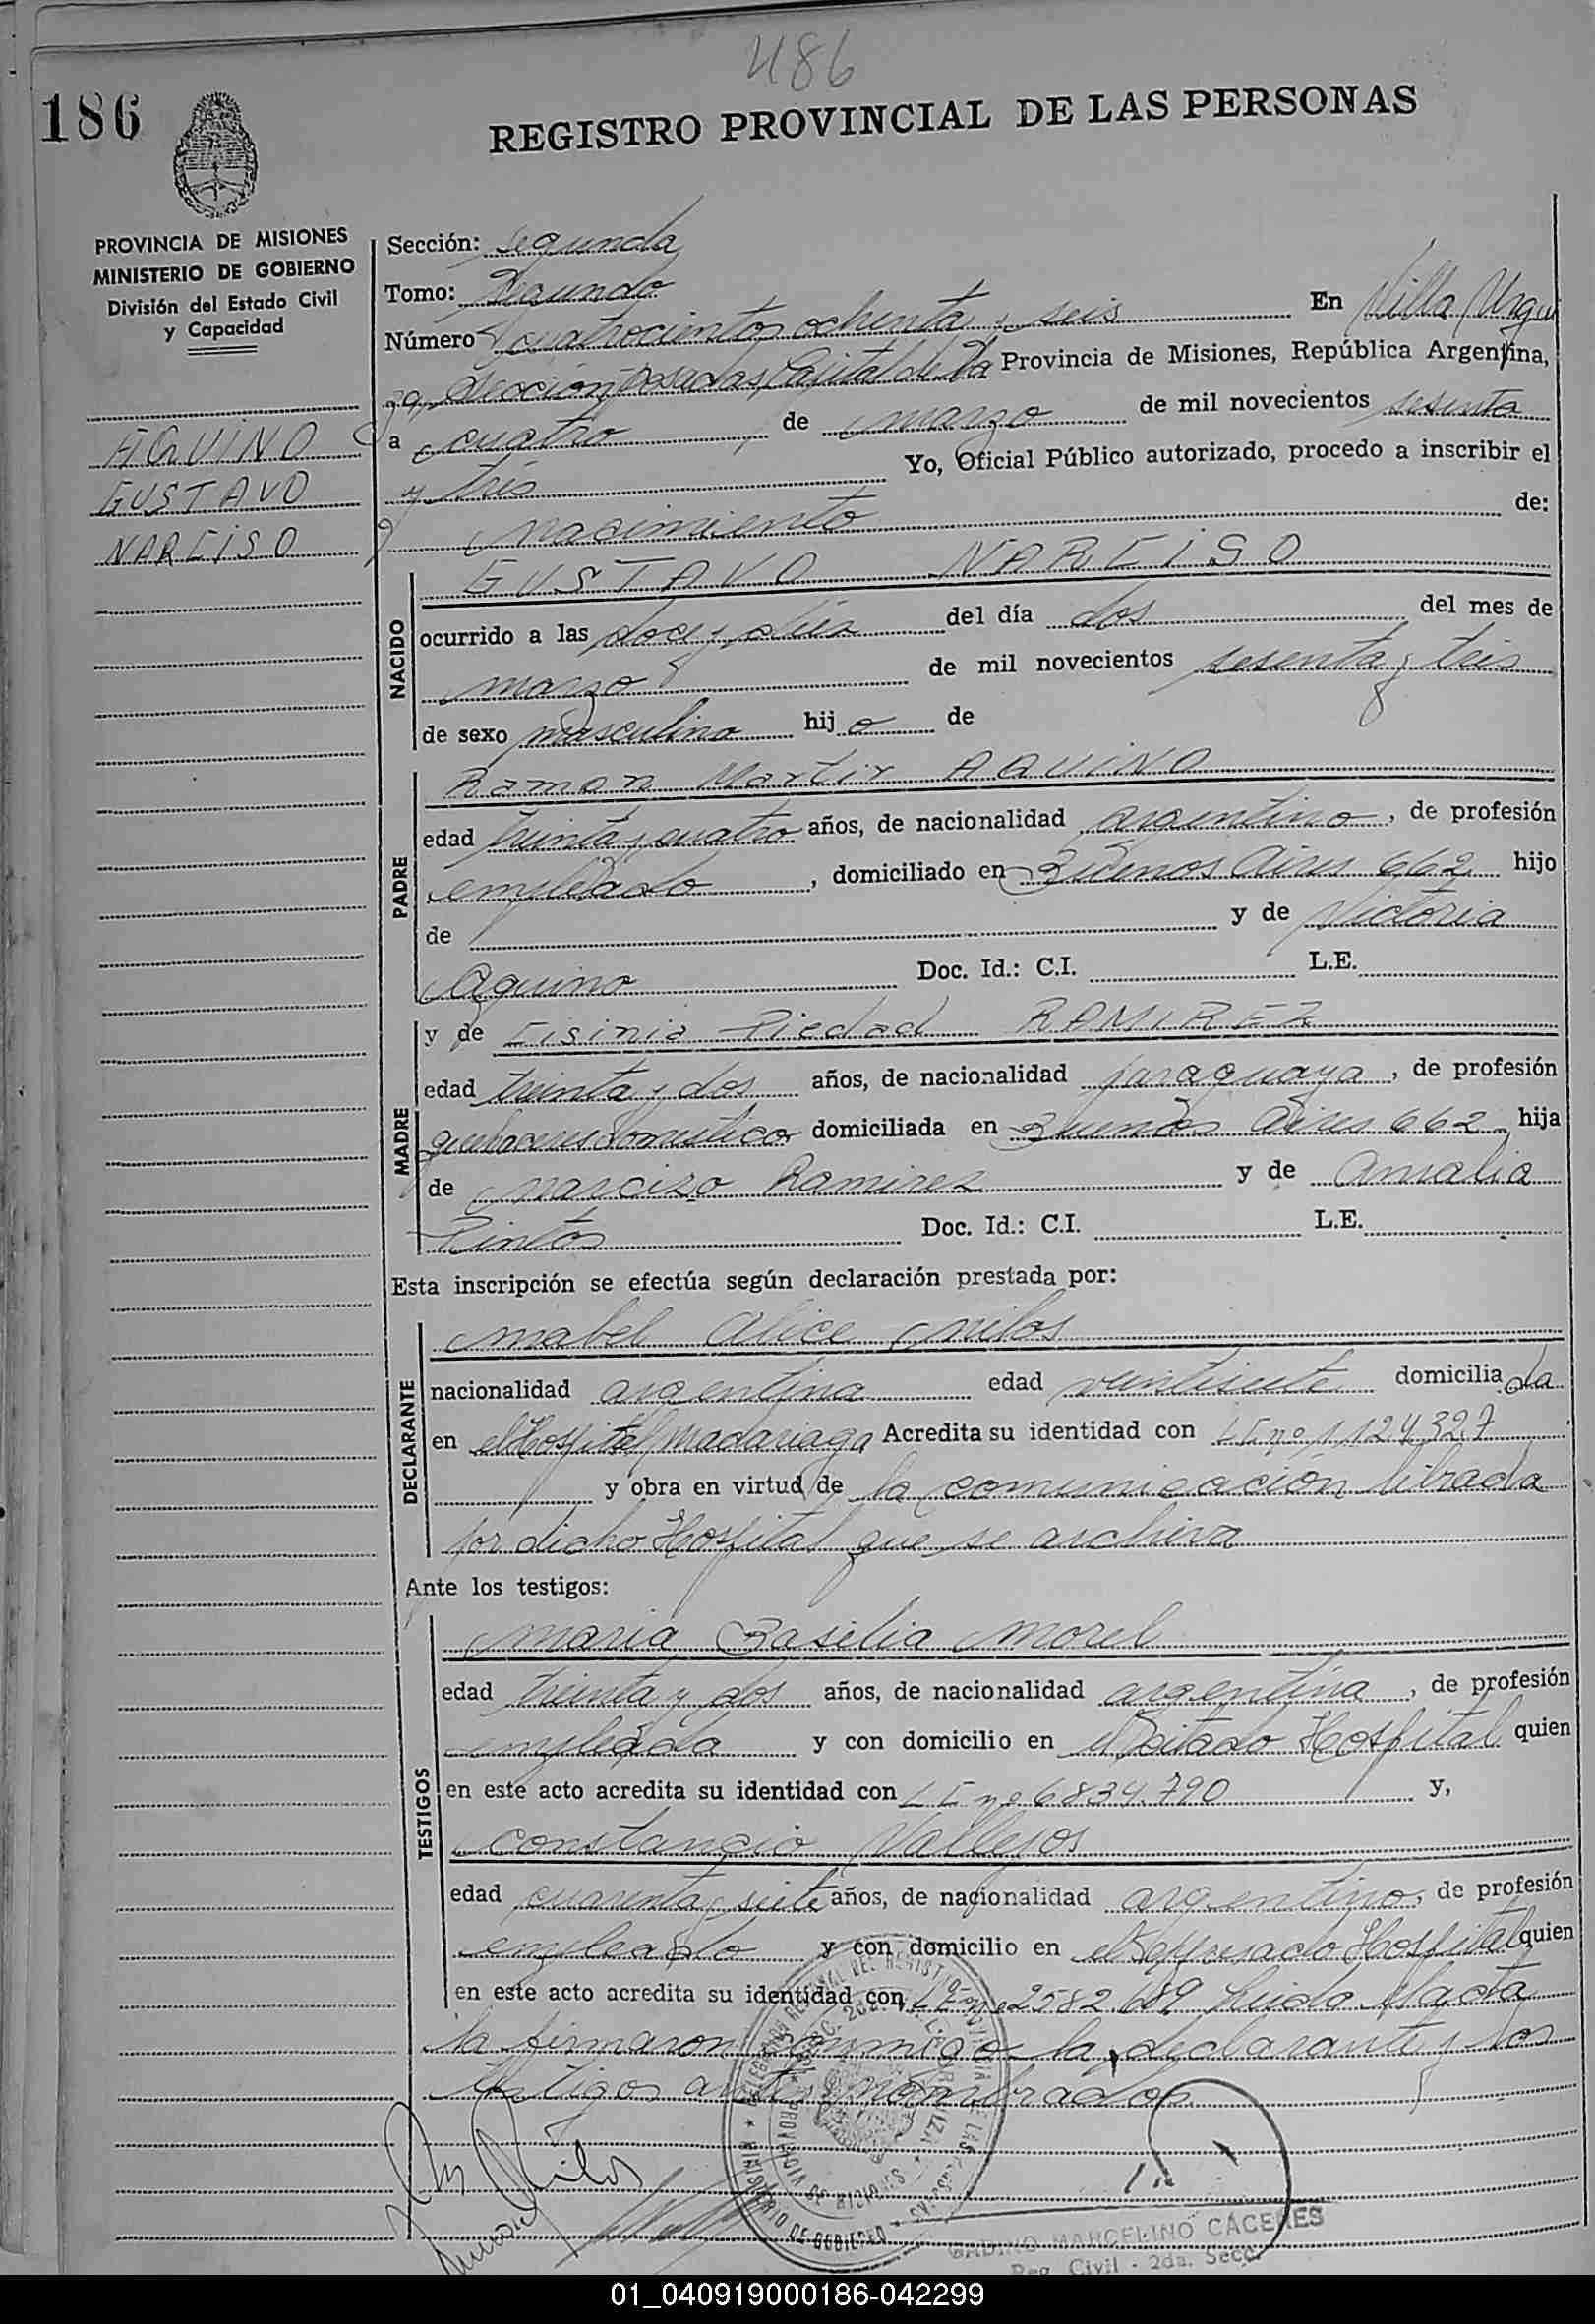 486
186
REGISTRO PROVINCIAL DE LAS PERSONAS
PROVINCIA DE MISIONES
MINISTERIO DE GOBIERNO
División del Estado Civil
y Capacidad
AQUINO
GUSTAVO
NARCISO
Sección: Segunda
Tomo: Segundo
Número cuatrocientos ochenta y seis En Villa Urqui
za, Sección Posadas, Capital de la Provincia de Misiones, República Argentina,
a cuatro de marzo de mil novecientos sesenta
y tres Yo, Oficial Público autorizado, procedo a inscribir el
nacimiento de:
NACIDO
GUSTAVO NARCISO
ocurrido a las doce y diez del día dos del mes de
marzo de mil novecientos sesenta y tres
de sexo masculino hijo de
PADRE
Ramon Martir AQUINO
edad treinta y cuatro años, de nacionalidad argentino, de profesión
empleado, domiciliado en Buenos Aires 662 hijo
de y de Victoria
Aquino Doc. Id.: C.I. L.E.
MADRE
y de Eisinia Piedad RAMIREZ
edad treinta y dos años, de nacionalidad paraguaya, de profesión
quehaceres domesticos domiciliada en Buenos Aires 662 hija
de Narcizo Ramirez y de Amalia
Pintos Doc. Id.: C.I. L.E.
Esta inscripción se efectúa según declaración prestada por:
DECLARANTE
Mabel Alice Milos
nacionalidad argentina edad veintisiete domiciliada
en el Hospital Madariaga Acredita su identidad con LE nº 1.124.327
y obra en virtud de la comunicación librada
por dicho Hospital que se archiva
Ante los testigos:
TESTIGOS
Maria Basilia Morel
edad treinta y dos años, de nacionalidad argentina, de profesión
empleada y con domicilio en el citado Hospital quien
en este acto acredita su identidad con LE nº 6834.790 y,
Constancio Vallejos
edad cuarenta y siete años, de nacionalidad argentino, de profesión
empleado y con domicilio en el expresado Hospital quien
en este acto acredita su identidad con LE nº 2582.689 Leida el acta
la firmaron conmigo la declarante y los
testigos antes nombrados
MINISTERIO DE GOBIERNO
PROVINCIA DE MISIONES
MARCELINO CACERES
Reg. Civil - 2da. Secc.
01_040919000186-042299